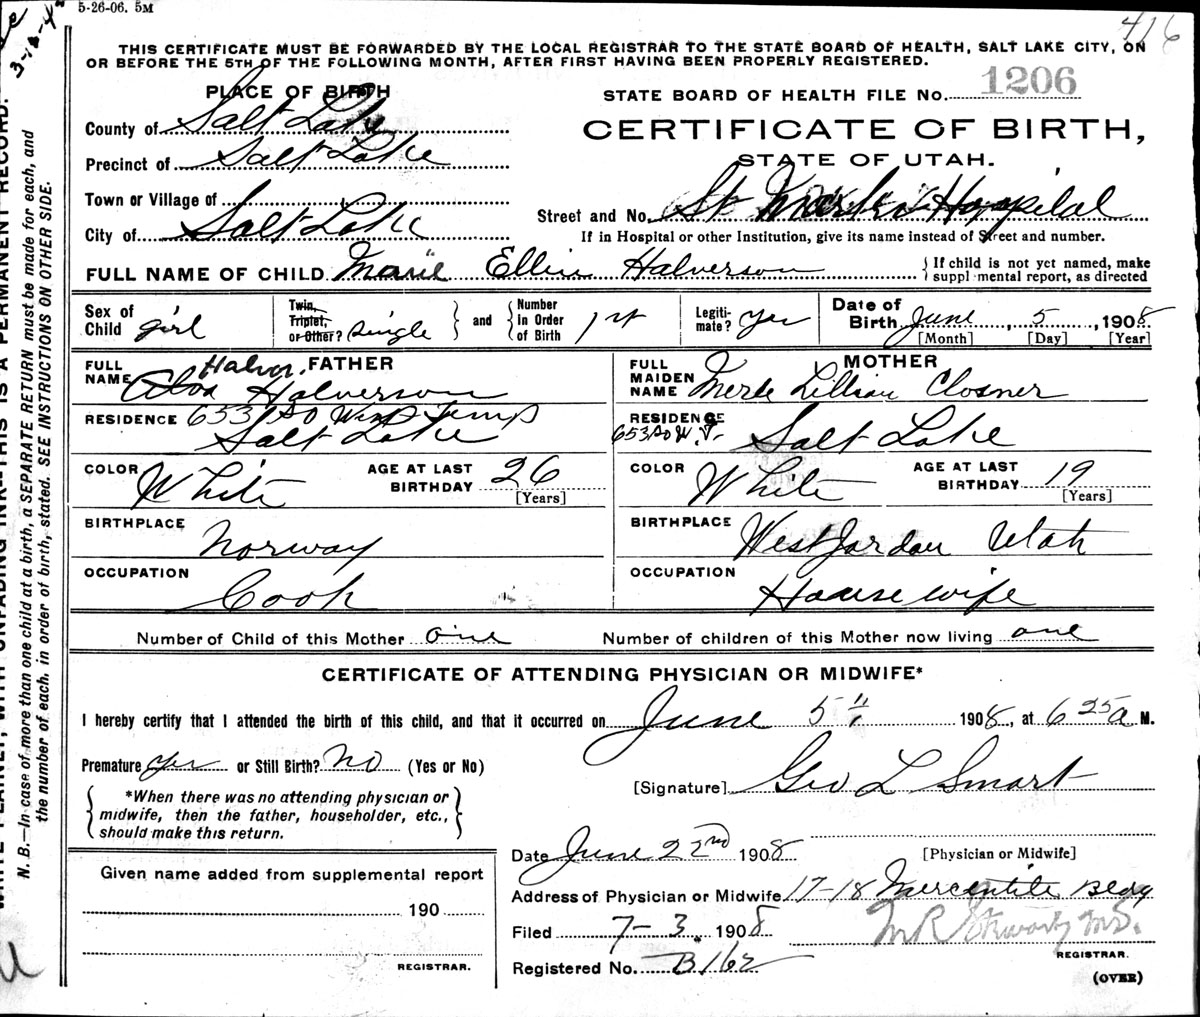 5-26-06. 5M
416
3-10-4
THIS CERTIFICATE MUST BE FORWARDED BY THE LOCAL REGISTRAR TO THE STATE BOARD OF HEALTH, SALT LAKE CITY, ON
OR BEFORE THE 5TH OF THE FOLLOWING MONTH, AFTER FIRST HAVING BEEN PROPERLY REGISTERED.
PLACE OF BIRTH
County of Salt Lake
Precinct of Salt Lake
Town or Village of
City of Salt Lake
STATE BOARD OF HEALTH FILE No. 1206
CERTIFICATE OF BIRTH,
STATE OF UTAH.
Street and No. St Mark's Hospital
If in Hospital or other Institution, give its name instead of Street and number.
FULL NAME OF CHILD Marie Ellen Halverson { If child is not yet named, make
suppl mental report, as directed
Sex of Child girl
Twin, Triplet, or Other? single } and { Number in Order of Birth 1st
Legiti-mate? yes
Date of Birth June, 5, 1908
[Month] [Day] [Year]
FATHER
FULL NAME Halvor Halverson
RESIDENCE 653 So West Temp
Salt Lake
COLOR White
AGE AT LAST BIRTHDAY 26
[Years]
BIRTHPLACE
Norway
OCCUPATION
Cook
MOTHER
FULL MAIDEN NAME Merle Lillian Closner
RESIDENCE
653 So W. T. Salt Lake
COLOR White
AGE AT LAST BIRTHDAY 19
[Years]
BIRTHPLACE West Jordan Utah
OCCUPATION
Housewife
Number of Child of this Mother one
Number of children of this Mother now living one
CERTIFICATE OF ATTENDING PHYSICIAN OR MIDWIFE*
I hereby certify that I attended the birth of this child, and that it occurred on June 5th 1908, at 6 25 a M.
Premature yes or Still Birth? No (Yes or No)
[Signature] Geo L Smart
*When there was no attending physician or
midwife, then the father, householder, etc.,
should make this return.
Date June 22nd 1908
[Physician or Midwife]
Given name added from supplemental report
190
REGISTRAR.
Address of Physician or Midwife 17-18 Mercantile Bldg
Filed 7-3, 1908
M.D.
REGISTRAR.
Registered No. B162
(OVER)
WRITE PLAINLY, WITH UNFADING INK--THIS IS A PERMANENT RECORD.
N. B.—In case of more than one child at a birth, a SEPARATE RETURN must be made for each, and
the number of each, in order of birth, stated. SEE INSTRUCTIONS ON OTHER SIDE.